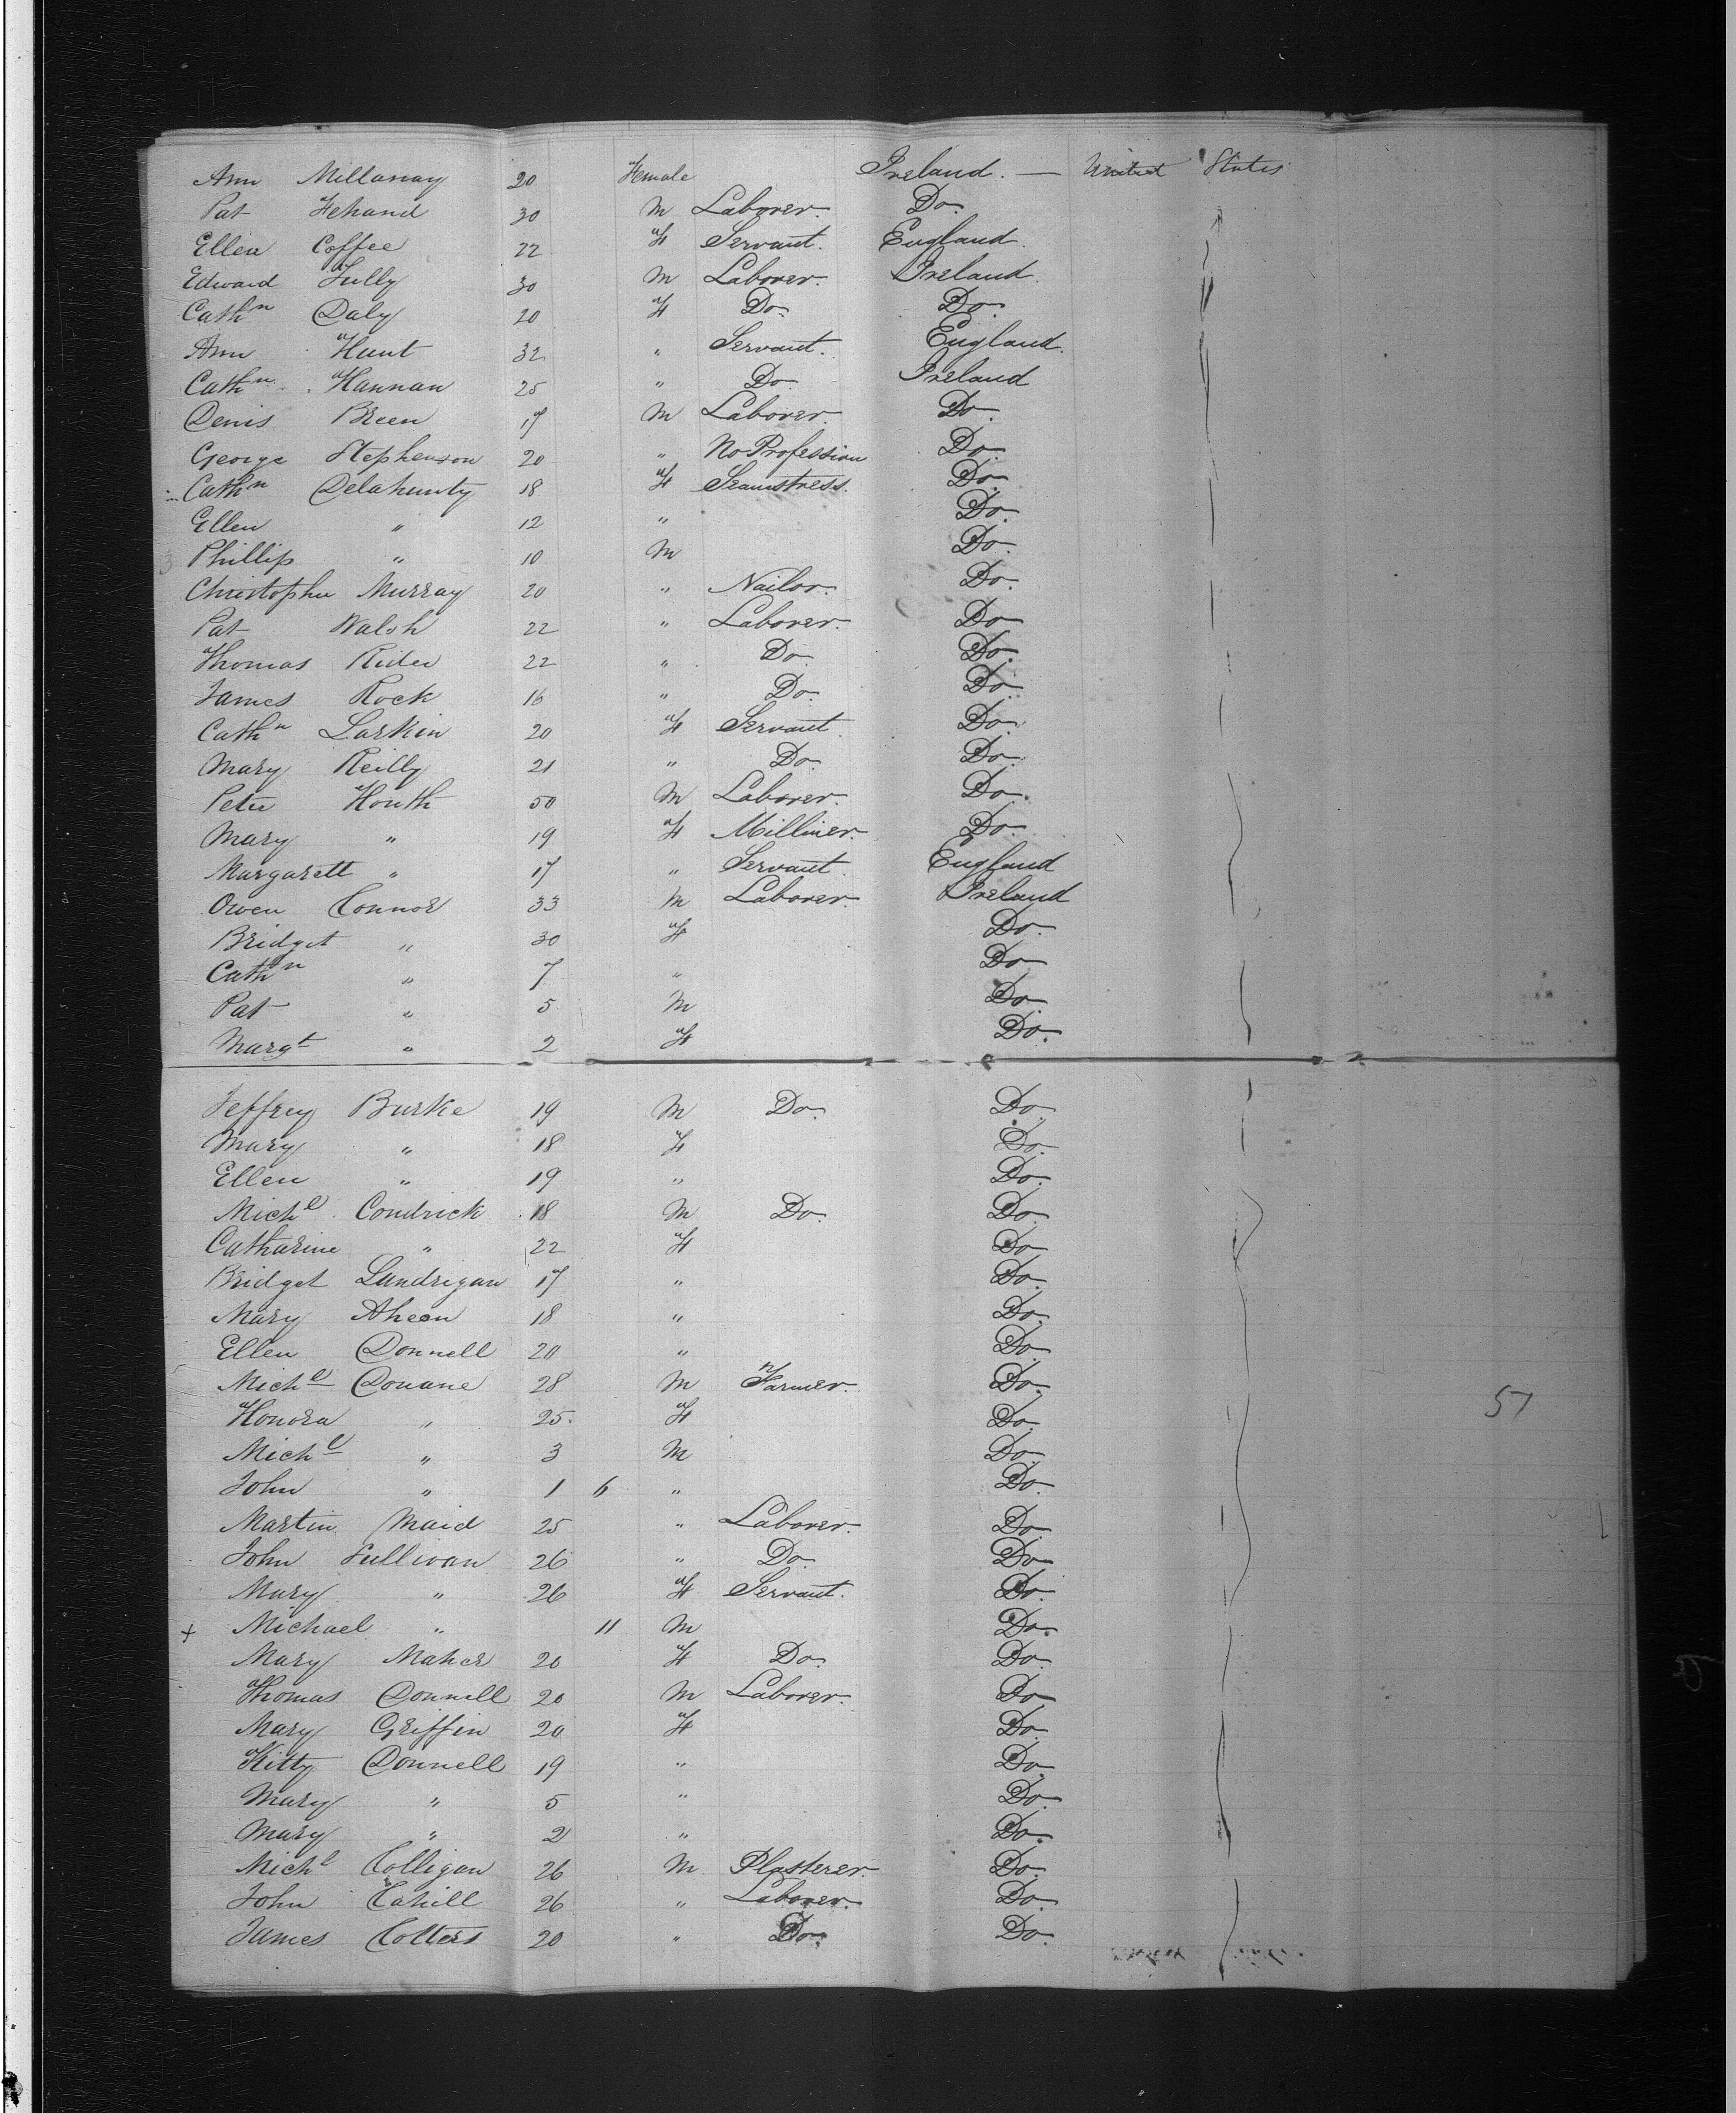 Ann Millanay 20 Female Ireland. — United States
Pat Fehand 30 M Laborer. Do.
Ellen Coffee 22 F Servant. England.
Edward Tully 30 M Laborer. Ireland.
Cathn Daly 20 F Do. Do.
Ann Hunt 32 " Servant. England.
Cathn Hannan 25 " Do. Ireland
Denis Breen 17 M Laborer. Do.
George Stephenson 20 " No Profession Do.
Cathn Delahunty 18 F Seamstress. Do.
Ellen " 12 " Do.
Phillip " 10 M Do.
Christopher Murray 20 " Nailor. Do.
Pat Walsh 22 " Laborer. Do
Thomas Rider 22 " Do. Do.
James Rock 16 " Do. Do.
Cathn Larkin 20 F Servant. Do.
Mary Reilly 21 " Do. Do.
Peter Houth 50 M Laborer. Do.
Mary " 19 F Milliner. Do.
Margarett " 17 " Servant. England
Owen Connor 33 M Laborer. Ireland
Bridget " 30 F Do.
Cathn " 7 " Do
Pat " 5 M Do.
Margt " 2 F Do.
Jeffrey Burke 19 M Do. Do.
Mary " 18 F Do.
Ellen " 19 " Do.
Michl Condrick 18 M Do. Do.
Catharine " 22 F Do
Bridget Landrigan 17 " Do.
Mary Aheon 18 " Do.
Ellen Donnell 20 " Do.
Michl Douane 28 M Farmer. Do.
Honora " 25 F Do. 57
Michl " 3 M Do.
John " 1 6 " Do.
Martin Maid 25 " Laborer. Do.
John Sullivan 26 " Do. Do
Mary " 26 F Servant. Do.
+ Michael " 11 M Do.
Mary Maher 20 F Do. Do.
Thomas Donnell 20 M Laborer. Do
Mary Griffin 20 F Do.
Kitty Donnell 19 " Do.
Mary " 5 " Do.
Mary " 2 " Do.
Michl Colligan 26 M Plasterer. Do.
John Cahill 26 " Laborer. Do.
James Cotters 20 " Do. Do.